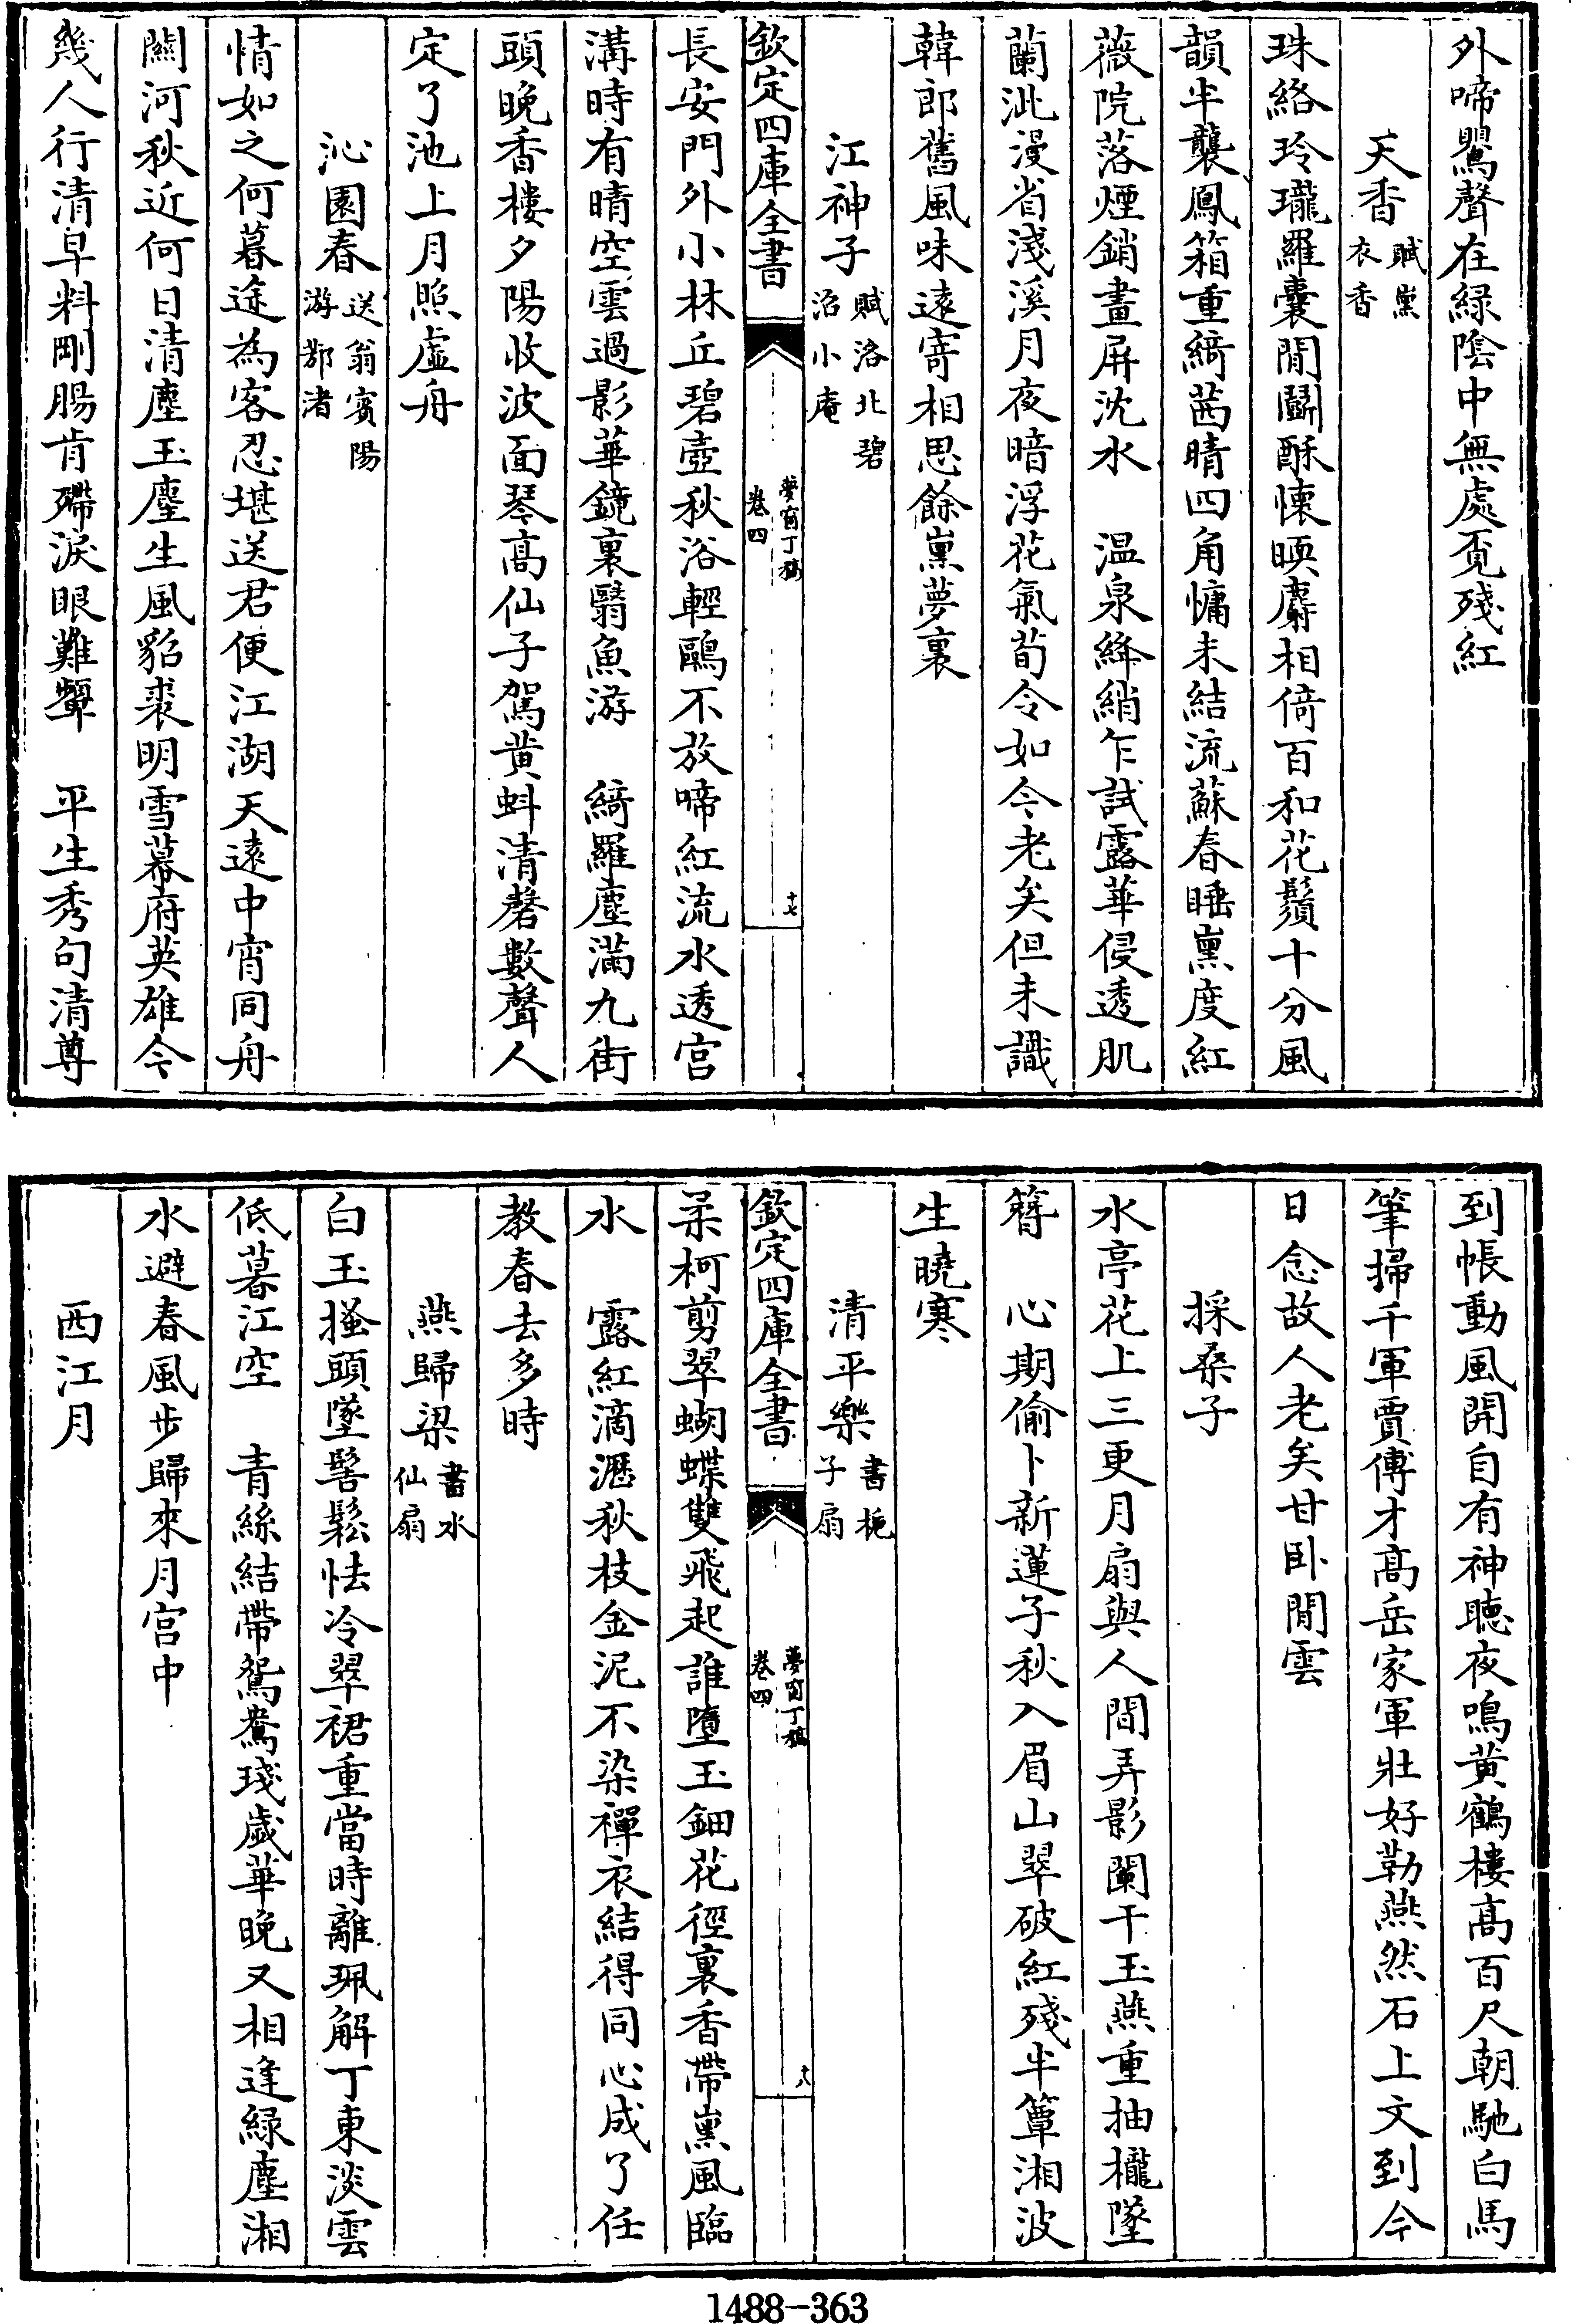 外啼鸎聲在緑隂中無處覔殘紅
天香賦薫衣香
珠絡玲瓏羅囊閒鬭酥懷暎麝相倚百和花鬚十分風
韻半襲鳳箱重綺茜晴四角慵未結流蘇春睡薫度紅
薇院落煙銷畫屏沈水　温泉絳綃乍試露華侵透肌
蘭泚漫省淺溪月夜暗浮花氣荀令如今老矣但未識
韓郎舊風味遠寄相思餘薫夢裏
江神子賦洛北碧沼小庵
欽定四庫全書　夢窗丁稿卷四　十七
長安門外小林丘碧壺秋浴輕鷗不放啼紅流水透宫
溝時有晴空雲過影華鏡裏翳魚游　綺羅塵滿九街
頭晩香樓夕陽收波面琴髙仙子駕黄蚪清磬數聲人
定了池上月照虚舟
沁園春送翁賓陽游鄂渚
情如之何暮途為客忍堪送君便江湖天遠中宵同舟
闗河秋近何日清塵玉塵生風貂裘明雪幕府英雄今
幾人行清早料剛腸肯殢淚眼難顰　平生秀句清尊
到帳動風開自有神聴夜鳴黄鶴樓髙百尺朝馳白馬
筆掃千軍賈傅才髙岳家軍壯好勒燕然石上文到今
日念故人老矣甘卧閒雲
採桑子
水亭花上三更月扇與人間弄影闌干玉燕重抽櫳墜
簪　心期偷卜新蓮子秋入眉山翠破紅殘半簟湘波
生曉寒
清平樂書梔子扇
欽定四庫全書　夢窗丁稿卷四　十八
柔柯剪翠蝴蝶雙飛起誰墮玉鈿花徑裏香帶薫風臨
水　露紅滴瀝秋枝金泥不染禪衣結得同心成了任
教春去多時
燕歸梁書水仙扇
白玉搔頭墜髻鬆怯冷翠裙重當時離珮解丁東淡雲
低暮江空　青絲結帶鴛鴦琖歲華晩又相逢緑塵湘
水避春風步歸來月宫中
西江月
1488-363